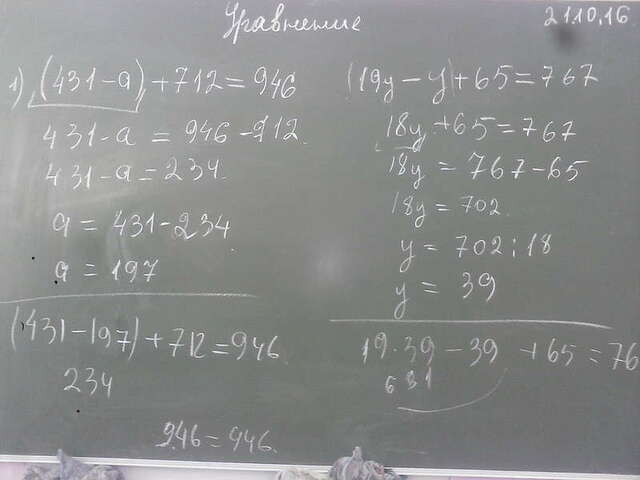 Уравнение
21.10.16
1) (431-а) + 712 = 946
431-а = 946 - 712
431-а = 234.
а = 431 - 234
а = 197
(431-197) + 712 = 946
234
946 = 946.
(19у - у) + 65 = 767
18у + 65 = 767
18у = 767 - 65
18у = 702
у = 702 : 18
у = 39
19 · 39 - 39 + 65 = 76